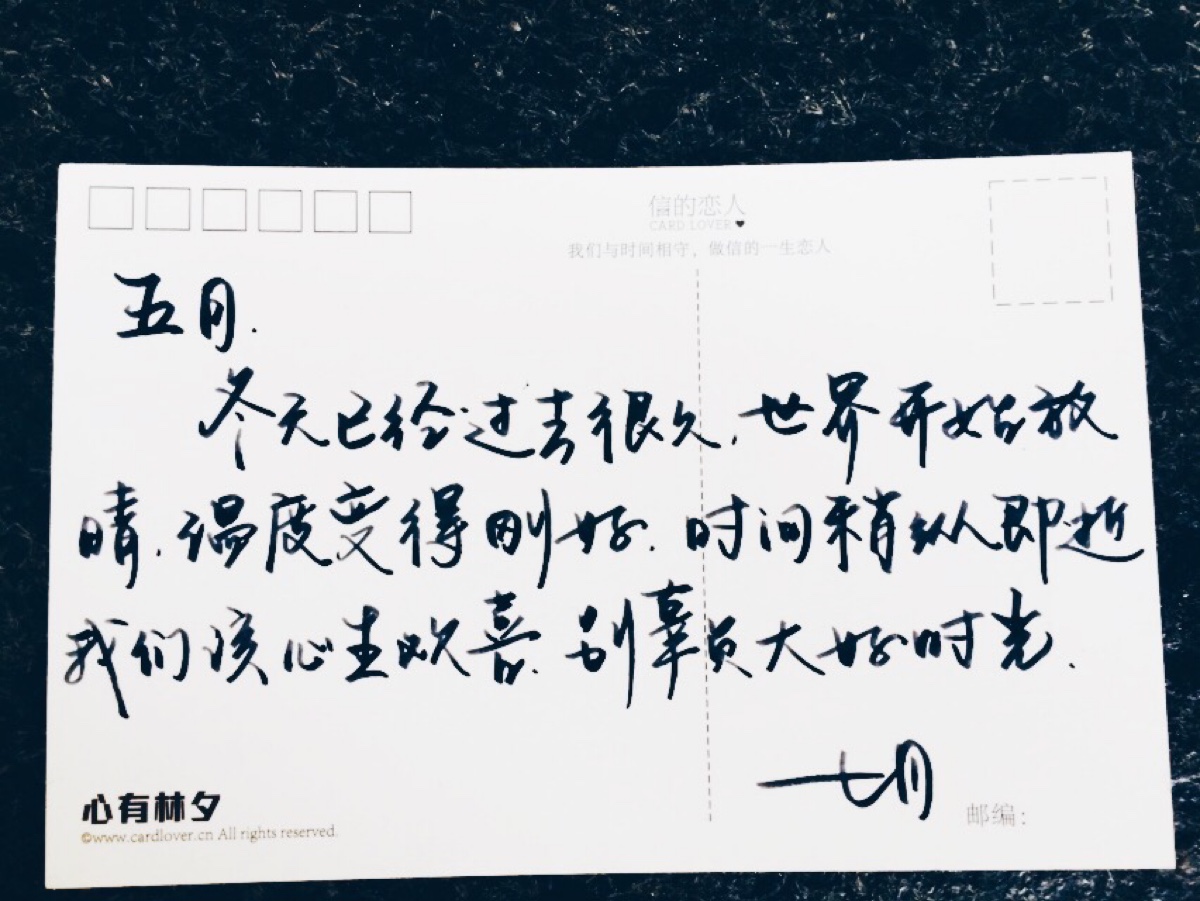 信的恋人
CARD LOVER
我们与时间相守，做信的一生恋人
五月.
冬天已经过去很久,世界开始放
晴.温度变得刚好.时间稍纵即逝
我们该心生欢喜.别辜负大好时光.
七月
邮编:
心有林夕
©www.cardlover.cn All rights reserved.